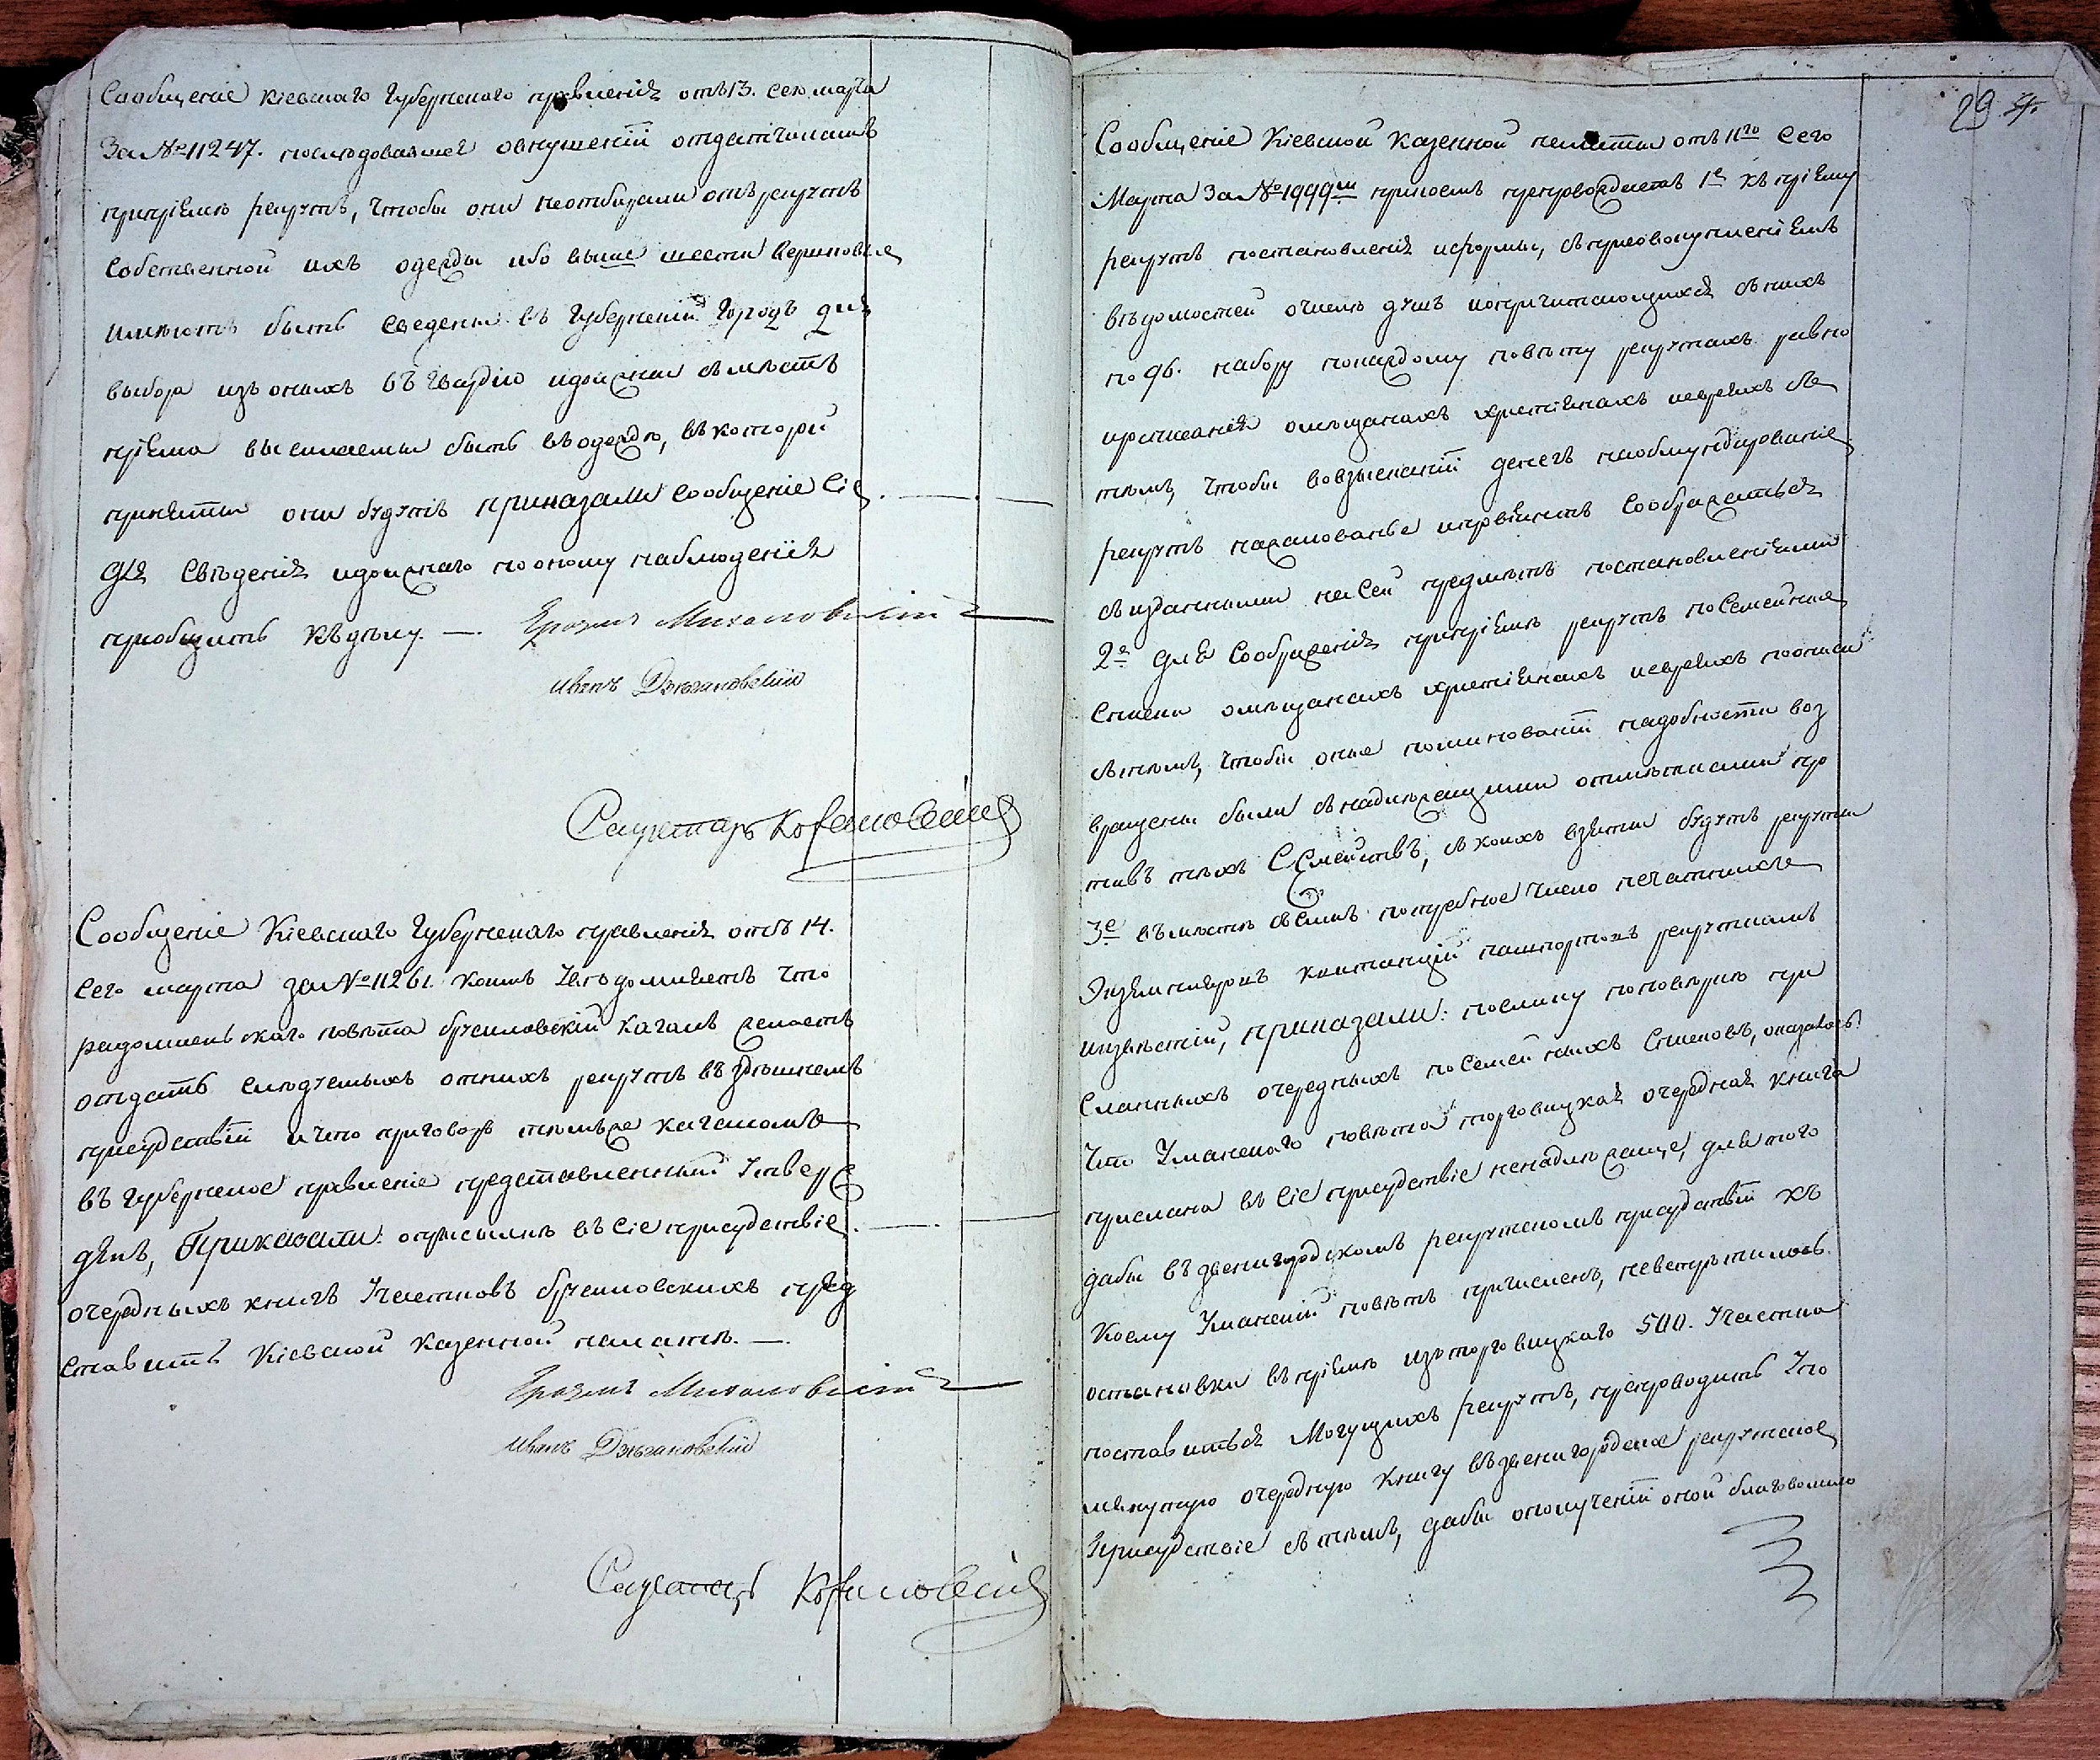 Сообщеніе Кіевскаго Губернскаго правленія отъ 13. сего марта
За № 11247. последовавшее овнушеніи отдатчикамъ
припріемѣ рекрутъ, чтобы они неотбирали отъ рекрутъ
собственной ихъ одежды ибо выше шести вершковые
имѣютъ быть сведены въ Губернскій Городъ для
выбора изъ оныхъ въ Гвардію идолжни съмѣстъ
пріема высилаемы быть въодеждѣ, въкоторй
приняты они будутъ приказали сообщеніе Сіе
Для Свѣденія идолжнаго поономy наблюденія
приобщить къдѣлу. —. Еразмъ Михаловскій
Иванъ
Секретарь
Сообщеніе Кіевскаго Губернскаго правленія отъ 14.
сего марта за № 11261. коимъ Увѣдомляетъ что
радомысльскаго повѣта брусиловскій Кагалъ желаетъ
отдать слѣдуемыхъ отнихъ рекрутъ въздѣшнемъ
присудствіи ичто приговоръ темъже кагаломъ
въ Губернское правленіе представленный Утверж
дѣнъ, Приказали: оприсылкѣ въ Сіе присудствіе
очередныхъ книгъ Участковъ брусиловскихъ пред
ставить Кіевской Казенной палатѣ. —.
Еразмъ Михаловскій
Иванъ
Секретарь
29
Сообщеніе Кіевской Казенной палаты отъ 11го сего
Марта За № 1999м припоемъ препровождаетъ 1е къ пріему
рекрутъ постановленія иформы, съприсовокупленіемъ
вѣдомостей очислѣ душъ ипричитающихся съ нихъ
по 96. набору покаждому повѣту рекрутахъ равно
ирасписанія омѣщанахъ христіянахъ иевреяхъ съ
тѣмъ, чтобы вовзысканіи денегъ наобмундированіе
рекрутъ нажалованье ипровіянтъ Сображаться
съизданными насей предмѣтъ постановленіями
2е Для Соображенія припріемѣ рекрутъ посемейные
списки омѣщанахъ христіянахъ иевреяхъ поописи
сътѣмъ, чтобы оные поминованіи надобности воз
вращены были снадлежащими отмѣтками про
тивъ тѣхъ Семействъ, съ коихъ взяты будутъ рекруты
3е вмѣстѣ съсимъ потребное число печатныхъ
Экземпляровъ квитанцій пашпортовъ рекрутскихъ
ипрозвѣстій, приказали: послику поповѣркѣ при
сланныхъ очередныхъ посемейныхъ Списковъ, оказалось
Что Уманскаго повѣта торговицкая очередная книга
прислана въ Сіе присудствіе ненадлежаще, для того
дабы въ звенигородскомъ рекрутскомъ присудствіи къ
Коему Уманскій повѣтъ причисленъ, невстрѣтилось
остановки въпріемѣ изъторговицкаго 500. Участка
поставиться Могущихъ рекрутъ, препроводить Упо
мянутую очередную Книгу възвенигородское рекрутское
Присудствіе съ тѣмъ, дабы ополученіи оной благоволило